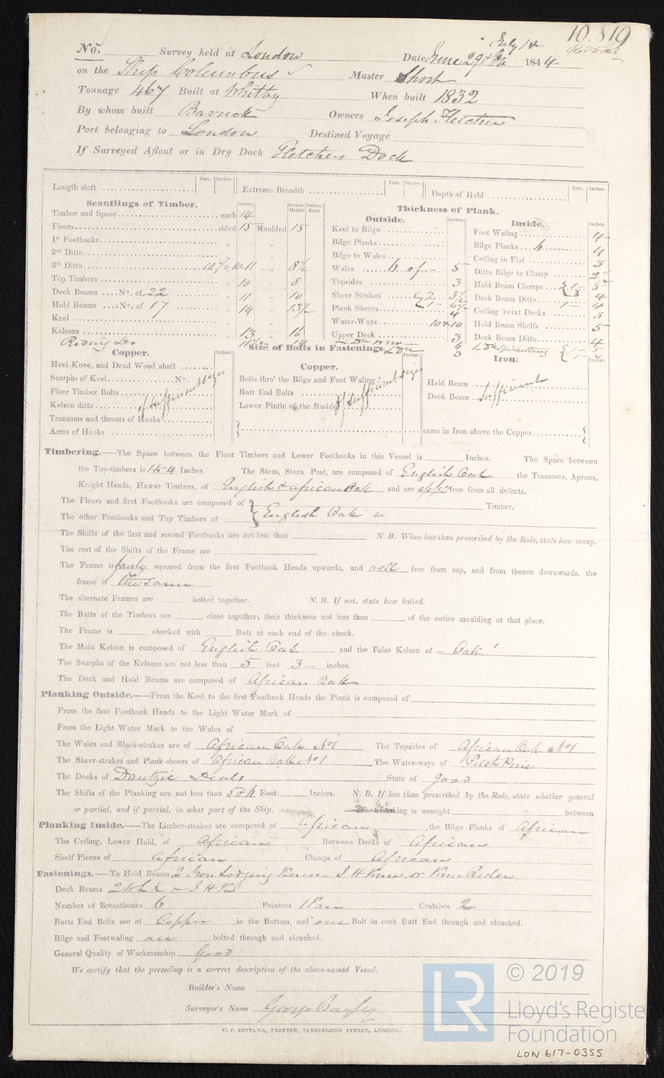 10819
No. Survey held at London Date June 29th July 1st 1844
on the Ship Columbus Master Short
Tonnage 467 Built at Whitby When built 1832
By whom built Barrick Owners Joseph Fletcher
Port belonging to London Destined Voyage
If Surveyed Afloat or in Dry Dock Fletchers Dock
Feet. Inches. Feet. Inches. Feet. Inches.
Length aloft Extreme Breadth Depth of Hold
Scantlings of Timber. Thickness of Plank.
Outside. Inside.
Timber and Space each 14
Floors sided 15 Moulded 15
1st Foothooks
2nd Ditto
3rd Ditto 10½ to 11 8½
Top Timbers 10 8
Deck Beams No. of 22 11 10
Hold Beams No. of 17 14 13½
Keel
Kelsons 13 16
Keel to Bilge
Bilge Planks
Bilge to Wales
Wales 5
Topsides 3
Sheer Strakes
Plank Sheers
Water-Ways 10 x 10
Upper Deck 3
Foot Waling 4
Bilge Planks 4
Ceiling in Flat 3
Ditto Bilge to Clamp
Hold Beam Clamps
Deck Beam Ditto 4
Ceiling 'twixt Decks 3
Hold Beam Shelfs 5
Deck Beam Ditto 4
Size of Bolts in Fastenings.
Copper. Copper. Iron.
Heel-Knee, and Dead Wood shaft
Scarphs of Keel No.
Floor Timber Bolts
Kelson ditto of sufficient size
Transoms and throats of Hooks
Arms of Hooks
Bolts thro' the Bilge and Foot Waling
Butt End Bolts
Lower Pintle of the Rudder of sufficient size
Hold Beam
Deck Beam sufficient
same in Iron above the Copper
Timbering.—The Space between the Floor Timbers and Lower Foothooks in this Vessel is Inches. The Space between
the Top-timbers is Inches. The Stem, Stern Post, are composed of English Oak the Transoms, Aprons,
Knight Heads, Hawse Timbers, of English & African Oak and are free from all defects.
The Floors and first Foothooks are composed of Timber.
The other Foothooks and Top Timbers of English Oak
The Shifts of the first and second Foothooks are not less than N. B. When less than prescribed by the Rule, state how many.
The rest of the Shifts of the Frame are
The Frame is fairly squared from the first Foothook Heads upwards, and well free from sap, and from thence downwards, the
frame is The same
The alternate Frames are bolted together. N. B. If not, state how bolted.
The Butts of the Timbers are close together; their thickness not less than of the entire moulding at that place.
The Frame is chocked with Butt at each end of the chock.
The Main Kelson is composed of English Oak and the False Kelson of Oak
The Scarphs of the Kelsons are not less than 5 feet 3 inches.
The Deck and Hold Beams are composed of African Oak
Planking Outside.—From the Keel to the first Foothook Heads the Plank is composed of
From the first Foothook Heads to the Light Water Mark of
From the Light Water Mark to the Wales of
The Wales and Black-strakes are of African Oak No1 The Topsides of African Oak No1
The Sheer-strakes and Plank-sheers of African Oak No1 The Water-ways of Pitch Pine
The Decks of Dantzic Deals State of good
The Shifts of the Planking are not less than Feet Inches. N. B. If less than prescribed by the Rule, state whether general
or partial, and if partial, in what part of the Ship. planking is wrought between
Planking Inside.—The Limber-strakes are composed of African the Bilge Planks of African
The Ceiling, Lower Hold, of African Between Decks of African
Shelf Pieces of African Clamps of African
Fastenings.—To Hold Beams 2 Iron Lodging Knees
Deck Beams
Number of Breasthooks 6 Pointers 1 Pair Crutches 2
Butts End Bolts are of Copper in the Bottom, and one Bolt in each Butt End through and clenched.
Bilge and Footwaling are bolted through and clenched.
General Quality of Workmanship Good
We certify that the preceding is a correct description of the above-named Vessel.
Builder's Name
Surveyor's Name George Bayly
C. F. SEYFANG, PRINTER, FARRINGDON STREET, LONDON.
LR © 2019
Lloyd's Register
Foundation
LON 617-0355